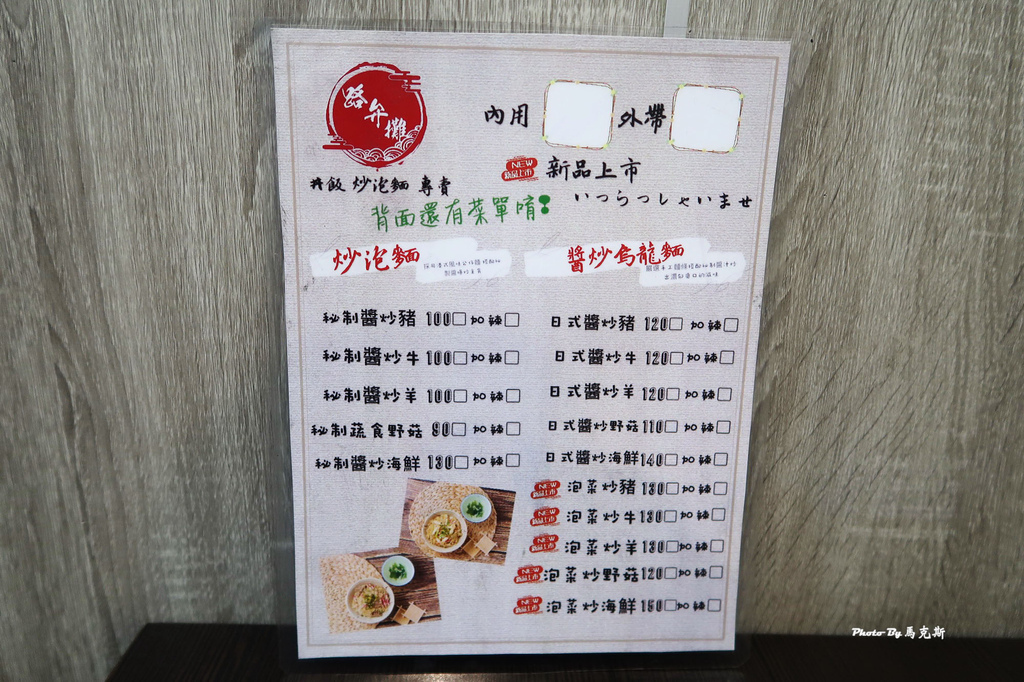 路弁攤
內用 外帶
NEW 新品上市 新品上市
丼飯 炒泡麵 專賣
いつらつしゃいませ
背面還有菜單唷
炒泡麵
醬炒烏龍麵
秘制醬炒豬 100□ 加辣□
秘制醬炒牛 100□ 加辣□
秘制醬炒羊 100□ 加辣□
秘制蔬食野菇 90□ 加辣□
秘制醬炒海鮮 130□ 加辣□
日式醬炒豬 120□ 加辣□
日式醬炒牛 120□ 加辣□
日式醬炒羊 120□ 加辣□
日式醬炒野菇 110□ 加辣□
日式醬炒海鮮 140□ 加辣□
NEW 新品上市 泡菜炒豬 130□ 加辣□
NEW 新品上市 泡菜炒牛 130□ 加辣□
NEW 新品上市 泡菜炒羊 130□ 加辣□
NEW 新品上市 泡菜炒野菇 120□ 加辣□
NEW 新品上市 泡菜炒海鮮 150□ 加辣□
Photo By 馬克斯